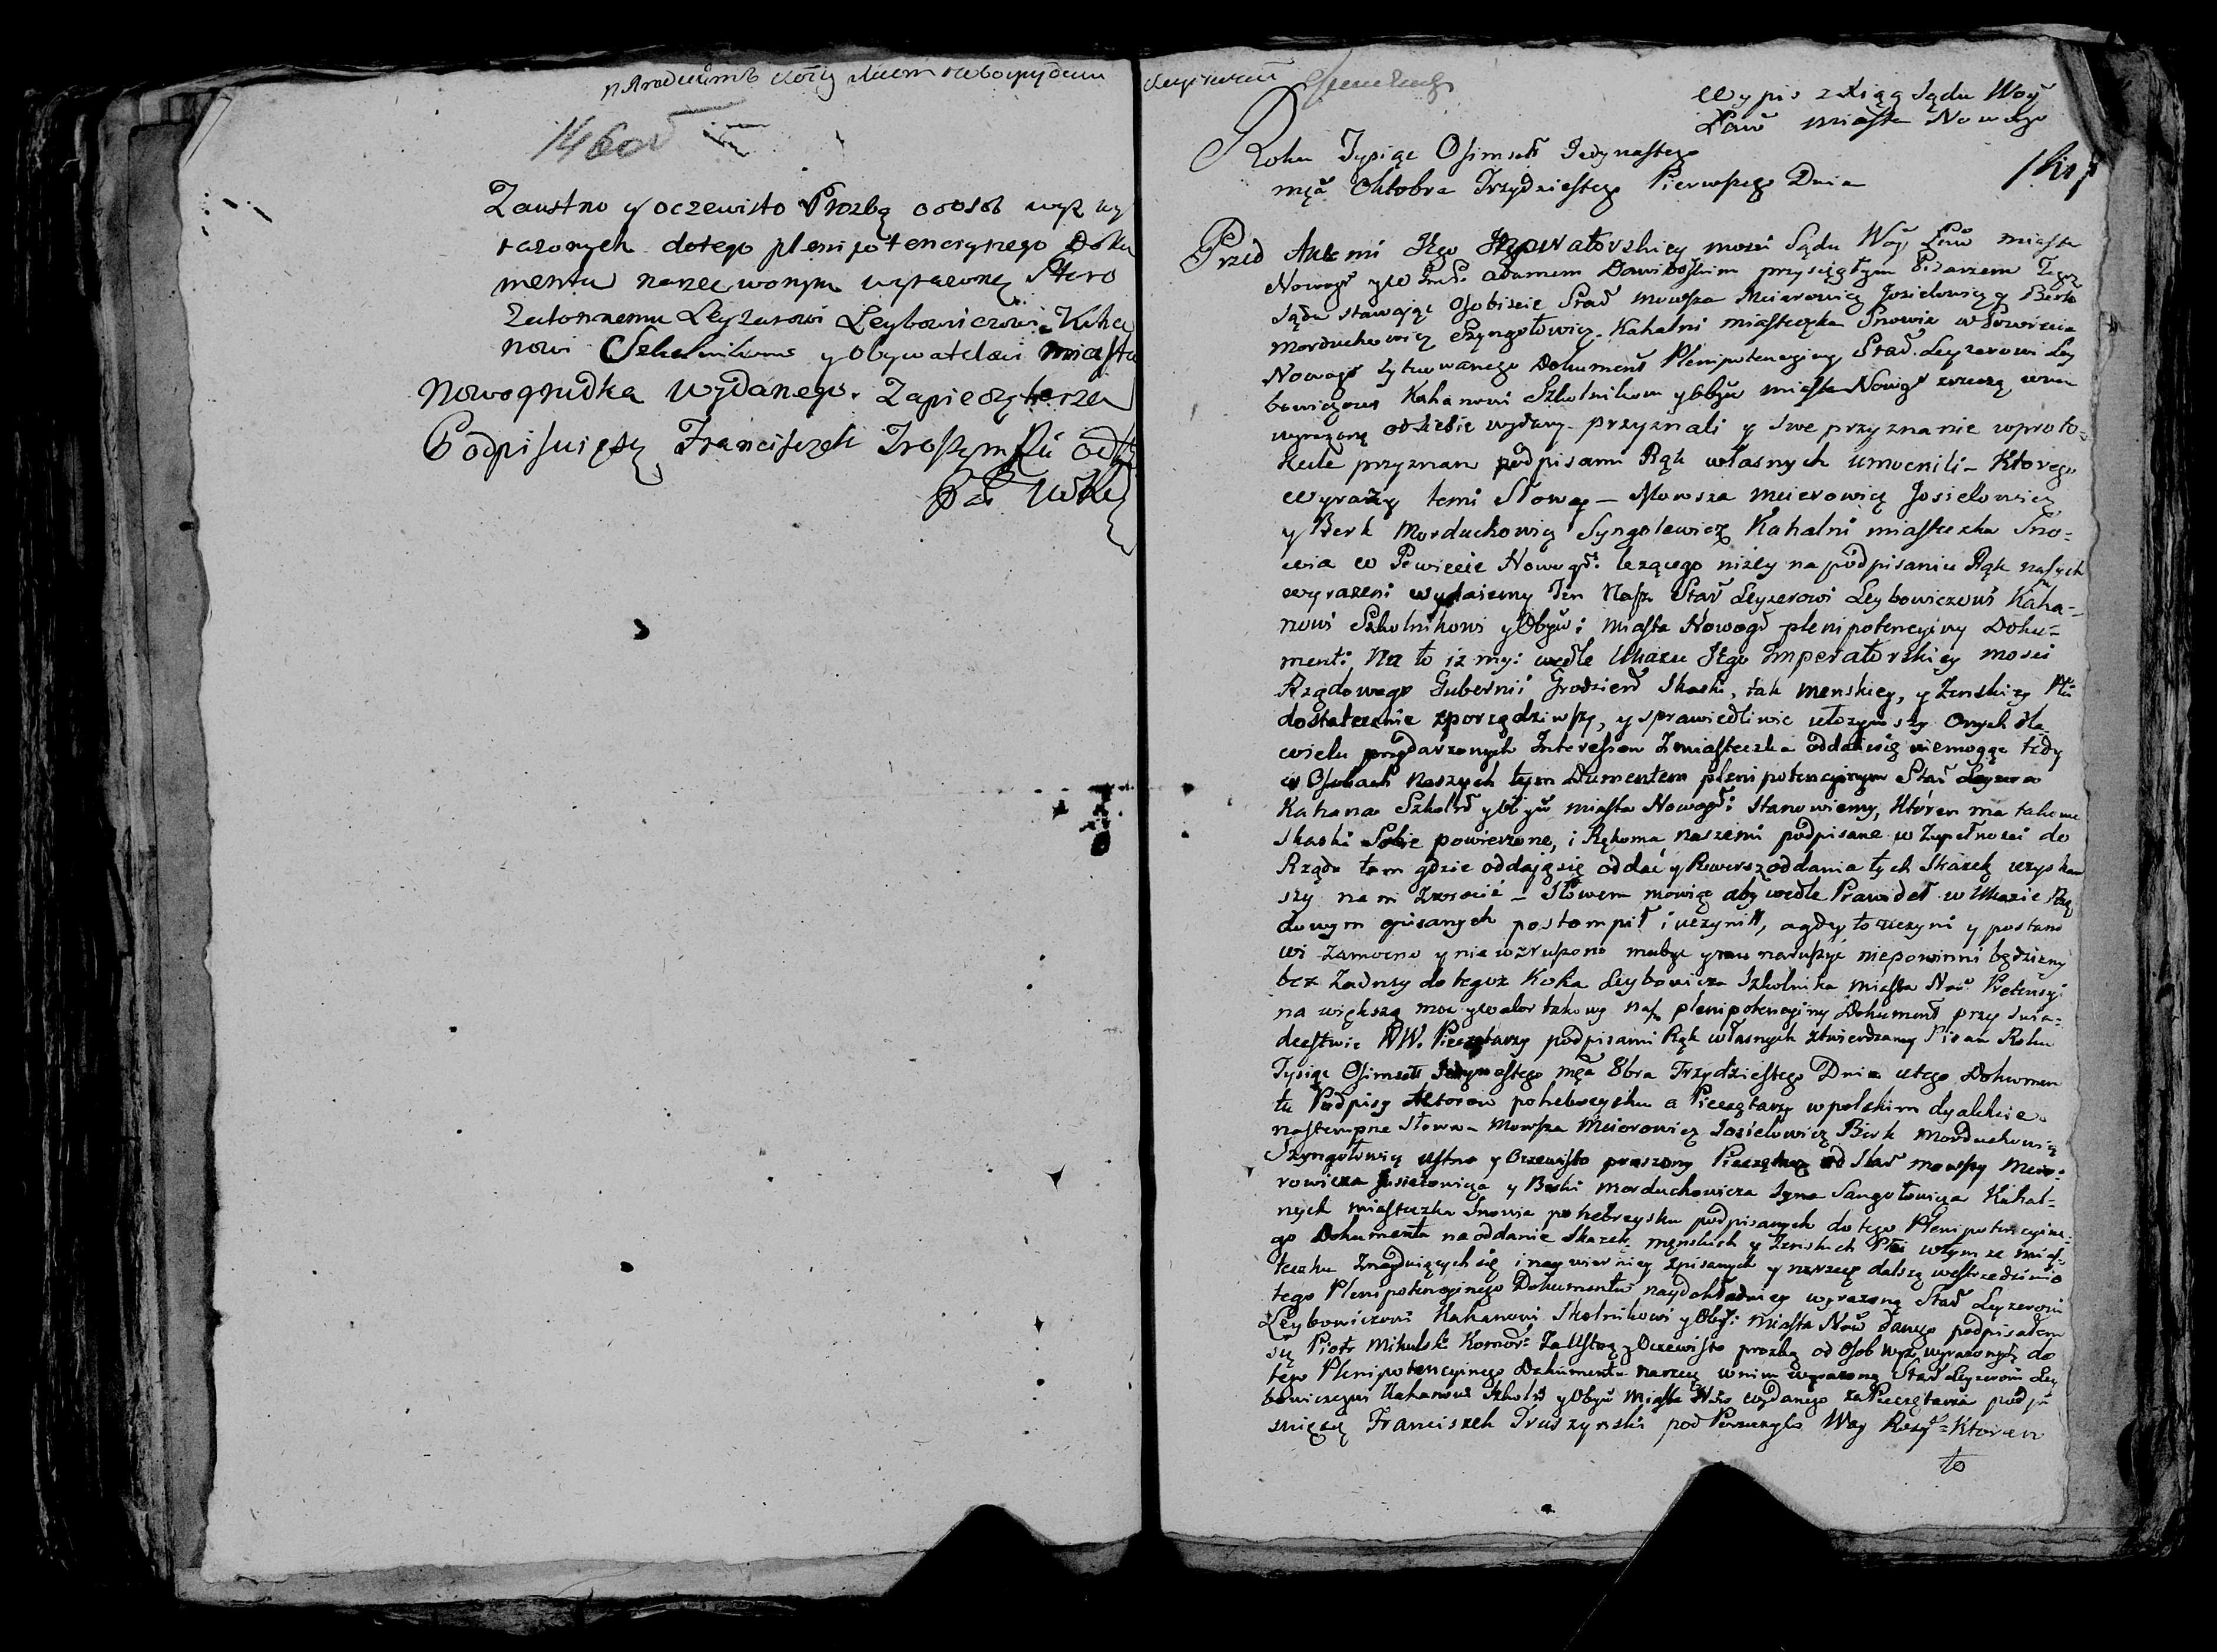 146 об
Zaustno y oczewisto Prozbą o osob wyz wy
razonych dotego plenipotencyinego Doku
mentu narzecz wonym wyrazoną Staro
Zakonnemu Leyzerowi Leybowiczowi Kaha
nowi Szkolnikowi y Obywatelowi miasta
Nowogrudka wydanego. Zapieczętarza
Podpisuię się Franciszek Troszynski
Wypis z Xiąg Sądu Woy
Ław miasta Nowogo
Roku Tysiąc Ośimset Jedynastego
mca Oktobra Trzydziestego Pierwszego Dnia
Przed Aktami Jego Imperatorskiey mości Sądu Woy Ław miasta
Nowogr Adamem Dawidowskim przysięgłym Pisarzem Tegoż
Sądu stawając Osobiscie Star Mowsza Meierowicz Josielowicz y Berko
Morduchowicz Szyngołowicz Kahalni miasteczka Snowia w Powiecie
Nowogr sytuowanego Dokument Plenipotencyiny Star. Leyzerowi Ley
bowiczowi Kahanowi Szkolnikowi y Obyw miasta Nowogr
wyrazoną od siebie wydany przyznali y Swe przyznanie wproto=
kule przyznan podpisami Rąk własnych umocnili - Ktorego
wyrazy temi Słowy - Mowsza Meierowicz Josielowicz
y Berk Morduchowicz Syngolewicz Kahalni miasteczka Sno=
wia w Powiecie Nowogr: lezącego niżey na podpisaniu Rąk naszych
wyrazeni wydaiemy Ten Nasz Star Leyzerowi Leybowiczowi Kaha-
nowi Szkolnikowi y Obyw: miasta Nowogr plenipotencyiny Doku=
ment: Na to iz my: wedle Ukazu Jego Imperatorskiey mosci
Rządowego Gubernii Grodzien Skaski, tak menskiey, y Zenskiey Płci
dostatecznie zporządziwszy, y sprawiedliwie ułozywszy Onych dla
wielu przydarzonych Interessow Zmiasteczka oddalić się niemogąc tedy
w Osobach Naszych tym Dumentem plenipotencyinym Star Leyzera
Kahana Szkoln y Obyw miasta Nowogr: Stanowiemy, Któren ma takowe
Skaski Sobie powierzone, i Rękoma naszemi podpisane w Zupełnosci do
Rządu tam gdzie oddaią się oddać y Rewersz oddania tych Skazek uzyskaw
szy nam Zwrocić - Słowem mowiąc aby wedle Prawideł w Ukazie Rzą
dowym opisanych postompił i uczynił, a gdy to uczyni y postano
wi Zamocno y nie wzruszono mabyc y naruszyć niepowinni będziemy
bez Zadney do tegoz Koha Leybowicza Szkolnika miasta Now Pretensyi
na większą moc y walor takowy nasz plenipotencyiny Dokument przy Swia=
dectwie WW. Pieczętarzy podpisami Rąk własnych ztwierdzamy Pisan Roku
Tysiąc Ośimset Jedynastego mca 8bra Trzydziestego Dnia utego Dokumen
tu Podpisy Aktorow pohebraysku a Pieczętarzy w polskim dyalekcie
nastempne Słowa - Mowsza Meierowicz Josielowicz Berk Morduchowicz
Szyngołowicz Ustnie y Oczewisto proszony Pieczętarz od Star Mowszy Meie=
rowicza Josielowicza y Berki Morduchowicza Syna Sangołowicza Kahal-
nych miasteczka Snowia pohebraysku podpisanych do tego Plenipotencyine-
go Dokumentu na oddanie Skazek męnskich y Zenskich Płci wtym ze mias-
teczku Znayduiących się i naywierniey spisanych y narzecz dalszą westrzedzinie
tego Plenipotencyinego Dokumentu naydokładniey wyrazoną Star Leyzerowi
Leybowiczowi Kahanowi Skolnikowi y Oby: Miasta Now danego podpisałem
się Piotr Mikulski Komor: Za Ustną y Oczewisto prozbą od Osob wyz wyrazonych do
tego Plenipotencyinego Dokumentu narzecz wnim wyrazoną Star Leyzerowi Ley
bowiczowi Kahanowi Szkoln y Obyw Miasta Now wydanego za Pieczętarza podpi
suię się Franciszek Truszynski - Ktoren
to